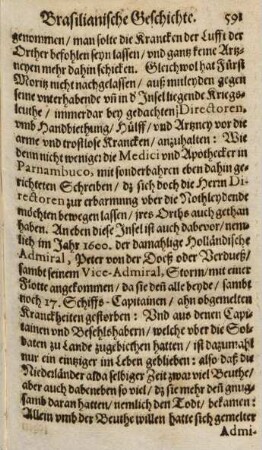 Brasilianische Geschichte. 591
genommen/ man solte die Krancken der Lufft der
Orther befohlen seyn lassen/ und gantz keine Artz-
neyen mehr dahin schicken. Gleichwol hat Fürst
Moritz nicht nachgelassen/ auß mitleyden gegen
seine unterhabende uñ in d' Insel liegende Kriegs-
leuthe/ immerdar bey gedachten Directoren,
umb Handbiethung/ Hülff/ und Artzney vor die
arme und trostlose Krancken/ anzuhalten: Wie
denn nicht weniger die Medici und Apothecker in
Parnambuco, mit sonderbahren eben dahin ge-
richteten Schreiben/ dz sich doch die Herrn Di-
rectoren zur erbarmung uber die Nothleydende
möchten bewegen lassen/ jres Orths auch gethan
haben. An eben diese Insel ist auch dabevor/ nem-
lich im Jahr 1600. der damahlige Holländische
Admiral, Peter von der Doeß oder Verdueß/
sambt seinem Vice-Admiral, Storm/ mit einer
Flotte angekommen/ da sie deñ alle beyde/ sambt
noch 17. Schiffs-Capitainen/ ahn obgemelten
Kranckheiten gestorben: Und auß denen Capi-
tainen und Befehlshabern/ welche uber die Sol-
daten zu Lande zugebiethen hatten/ ist dazumahl
nur ein eintziger im Leben geblieben: also daß die
Niederländer alda selbiger Zeit zwar viel Beuthe/
aber auch dabeneben so viel/ dz sie mehr deñ gnug-
samb daran hatten/ nemlich den Todt/ bekamen:
Allein umb der Beuthe willen hatte sich gemelter
Admi-